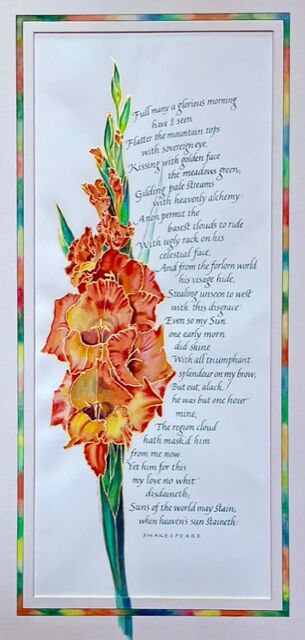 Full many a glorious morning
have I seen
Flatter the mountain tops
with sovereign eye,
Kissing with golden face
the meadows green,
Gilding pale streams
with heavenly alchemy:
Anon permit the
basest clouds to ride
With ugly rack on his
celestial face,
And from the forlorn world
his visage hide,
Stealing unseen to west
with this disgrace:
Even so my Sun
one early morn
did shine
With all triumphant
splendour on my brow,
But out, alack,
he was but one hour
mine,
The region cloud
hath mask.d him
from me now.
Yet him for this
my love no whit
disdaineth;
Suns of the world may stain,
when heaven's sun staineth.
SHAKESPEARE